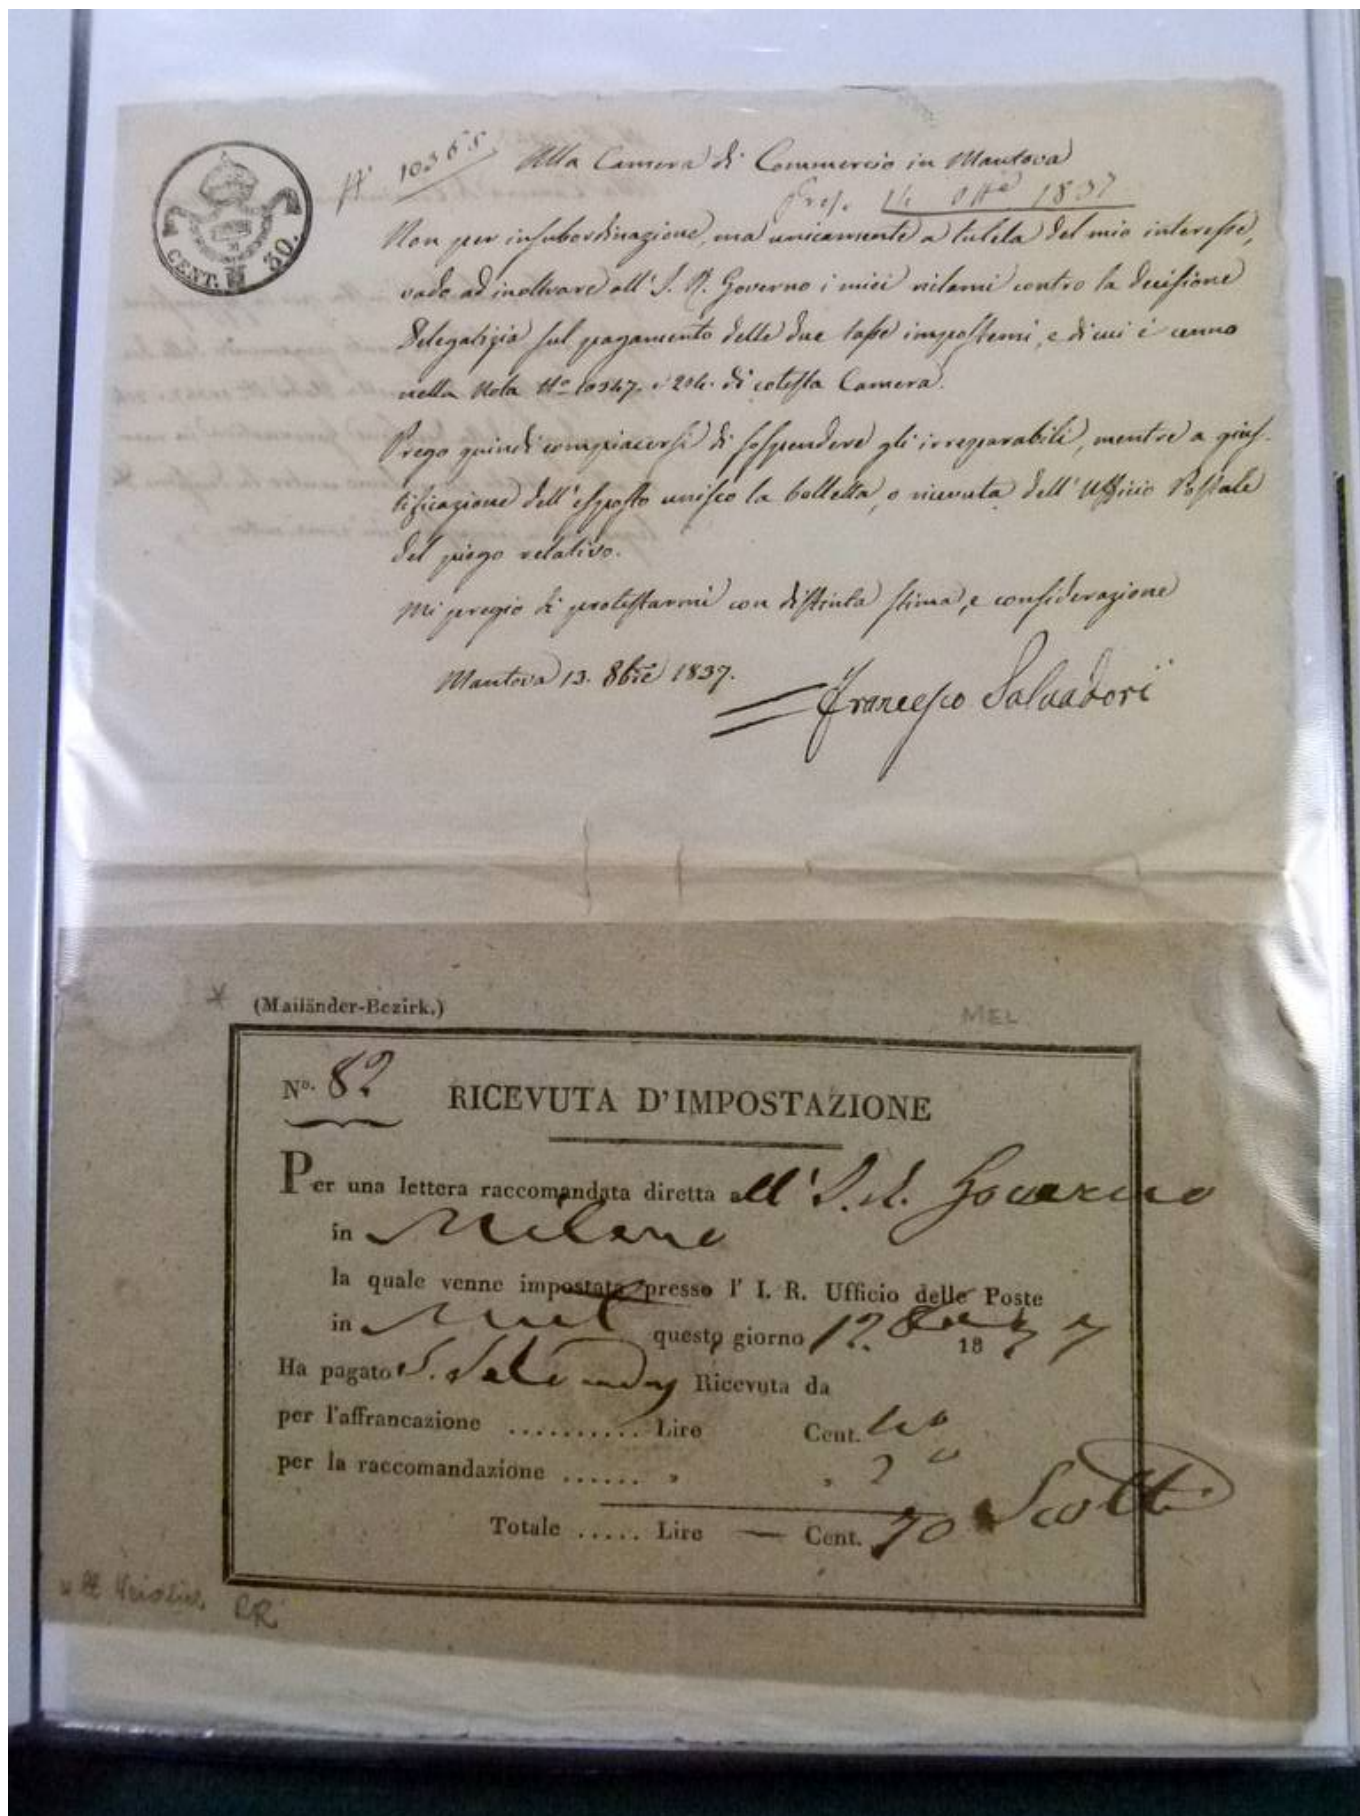 CENT. 30.
N° 10365
Alla Camera di Commercio in Mantova
Pres. 14 Ott.e 1837
Non per insubordinazione, ma unicamente a tutela del mio interesse,
vado ad inoltrare all' I. R. Governo i miei riclami contro la decisione
Delegatizia sul pagamento delle due tasse impostemi, e di cui è cenno
nella Nota N.o 10347. e 204. di cotesta Camera.
Prego quindi compiacersi di sospendere gli irreparabili, mentre a gius-
tificazione dell' esposto unisco la bolletta, o ricevuta dell' Uffizio Postale
del piego relativo.
Mi pregio di protestarmi con distinta stima, e considerazione
Mantova 13. 8bre 1837.
Francesco Salvadori
(Mailänder-Bezirk.)
MEL
No. 82
RICEVUTA D'IMPOSTAZIONE
Per una lettera raccomandata diretta all' I. R. Governo
in Milano
la quale venne impostata presso l' I. R. Ufficio delle Poste
in questo giorno 12. 1837
Ha pagato Ricevuta da
per l'affrancazione .......... Lire Cent.
per la raccomandazione ...... „ „
Totale ..... Lire — Cent. 70 Scotti
RR